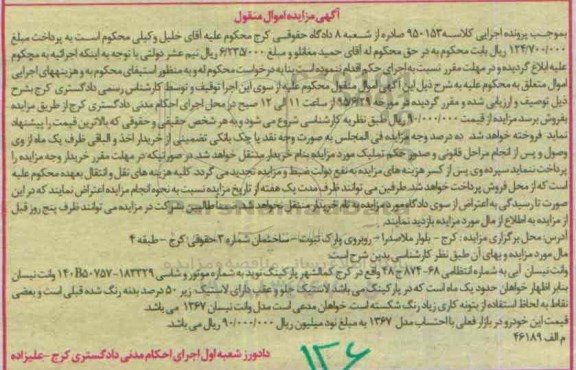 آگهی مزایده اموال منقول
بموجب پرونده اجرایی کلاسه ۹۵۰۱۵۳ صادره از شعبه ۸ دادگاه حقوقی کرج محکوم علیه آقای خلیل وکیلی محکوم است به پرداخت مبلغ
۱۲۴/۷۰۰/۰۰۰ ریال بابت محکوم به در حق محکوم له آقای حمید مغفلو و مبلغ ۶/۲۳۵/۰۰۰ ریال نیم عشر دولتی با توجه به اینکه اجرائیه به محکوم
علیه ابلاغ گردیده و در مهلت مقرر نسبت به اجرای حکم اقدام ننموده است بنا به درخواست محکوم له و به منظور استیفای محکوم به و هزینههای اجرایی
اموال متعلق به محکوم علیه به شرح ذیل این آگهی اموال منقول محکوم علیه از سوی این اجرا توقیف و توسط کارشناس رسمی دادگستری کرج بشرح
ذیل توصیف و ارزیابی شده و مقرر گردیده در مورخه ۹۵/۶/۲۹ از ساعت ۱۱ الی ۱۲ صبح در محل اجرای احکام مدنی دادگستری کرج از طریق مزایده
بفروش برسد مزایده از قیمت ۹۰/۰۰۰/۰۰۰ ریال طبق نظریه کارشناسی شروع می شود و به هر شخص حقیقی و حقوقی که بالاترین قیمت را پیشنهاد
نماید فروخته خواهد شد. ده درصد وجه مزایده فی المجلس به صورت وجه نقد یا چک بانکی تضمینی از خریدار اخذ و الباقی ظرف یک ماه از وی
وصول و پس از انجام مراحل قانونی و صدور حکم تملیک مورد مزایده بنام خریدار منتقل خواهد شد. در صورتیکه در مهلت مقرر خریدار وجه مزایده را
پرداخت ننماید سپرده وی پس از کسر هزینه های مزایده به نفع دولت ضبط و مزایده تجدید می گردد. کلیه هزینه های نقل و انتقال بعهده محکوم علیه
است که از محل فروش پرداخت خواهد شد. طرفین می توانند ظرف مدت یک هفته از تاریخ مزایده نسبت به نحوه انجام مزایده اعتراض نمایند که در این
صورت تا رسیدگی به اعتراض از سوی دادگاه مورد مزایده به نام خریدار منتقل نخواهد شد. ضمنا طالبین شرکت در مزایده می توانند ظرف پنج روز قبل
از مزایده به اطلاع از مال مورد مزایده بازدید نمایند.
آدرس: محل برگزاری مزایده: کرج - بلوار ملاصدرا - روبروی پارک نبوت - ساختمان شماره ۳ حقوقی کرج - طبقه ۴
مال مورد مزایده و بهای آن طبق نظر کارشناسی بدین شرح است:
وانت نیسان آبی به شماره انتظامی ۶۸-۸۷۴ ج ۴۸ واقع در کرج کمالشهر پارکینگ نوید به شماره موتور و شاسی ۱۸۳۲۲۹-۱۴۰B۵۰۷۵۷ وانت نیسان
بنابر اظهار خواهان حدود یک ماه است که در پارکینگ می باشد لاستیک جلو و عقب دارای لاستیک: زیر ۵۰ درصد بدنه رنگ شده قبلی است و بعضی
نقاط به لحاظ استفاده از بتونه کاری زیاد رنگ شکسته است. خواهان مدعی است مدل وانت نیسان ۱۳۶۷ می باشد.
قیمت این خودرو در بازار فعلی با احتساب مدل ۱۳۶۷ به مبلغ نود میلیون ریال ۹۰/۰۰۰/۰۰۰ ریال می باشد.
م الف ۴۶۱۸۹
دادورز شعبه اول اجرای احکام مدنی دادگستری کرج - علیزاده
۱۲۶